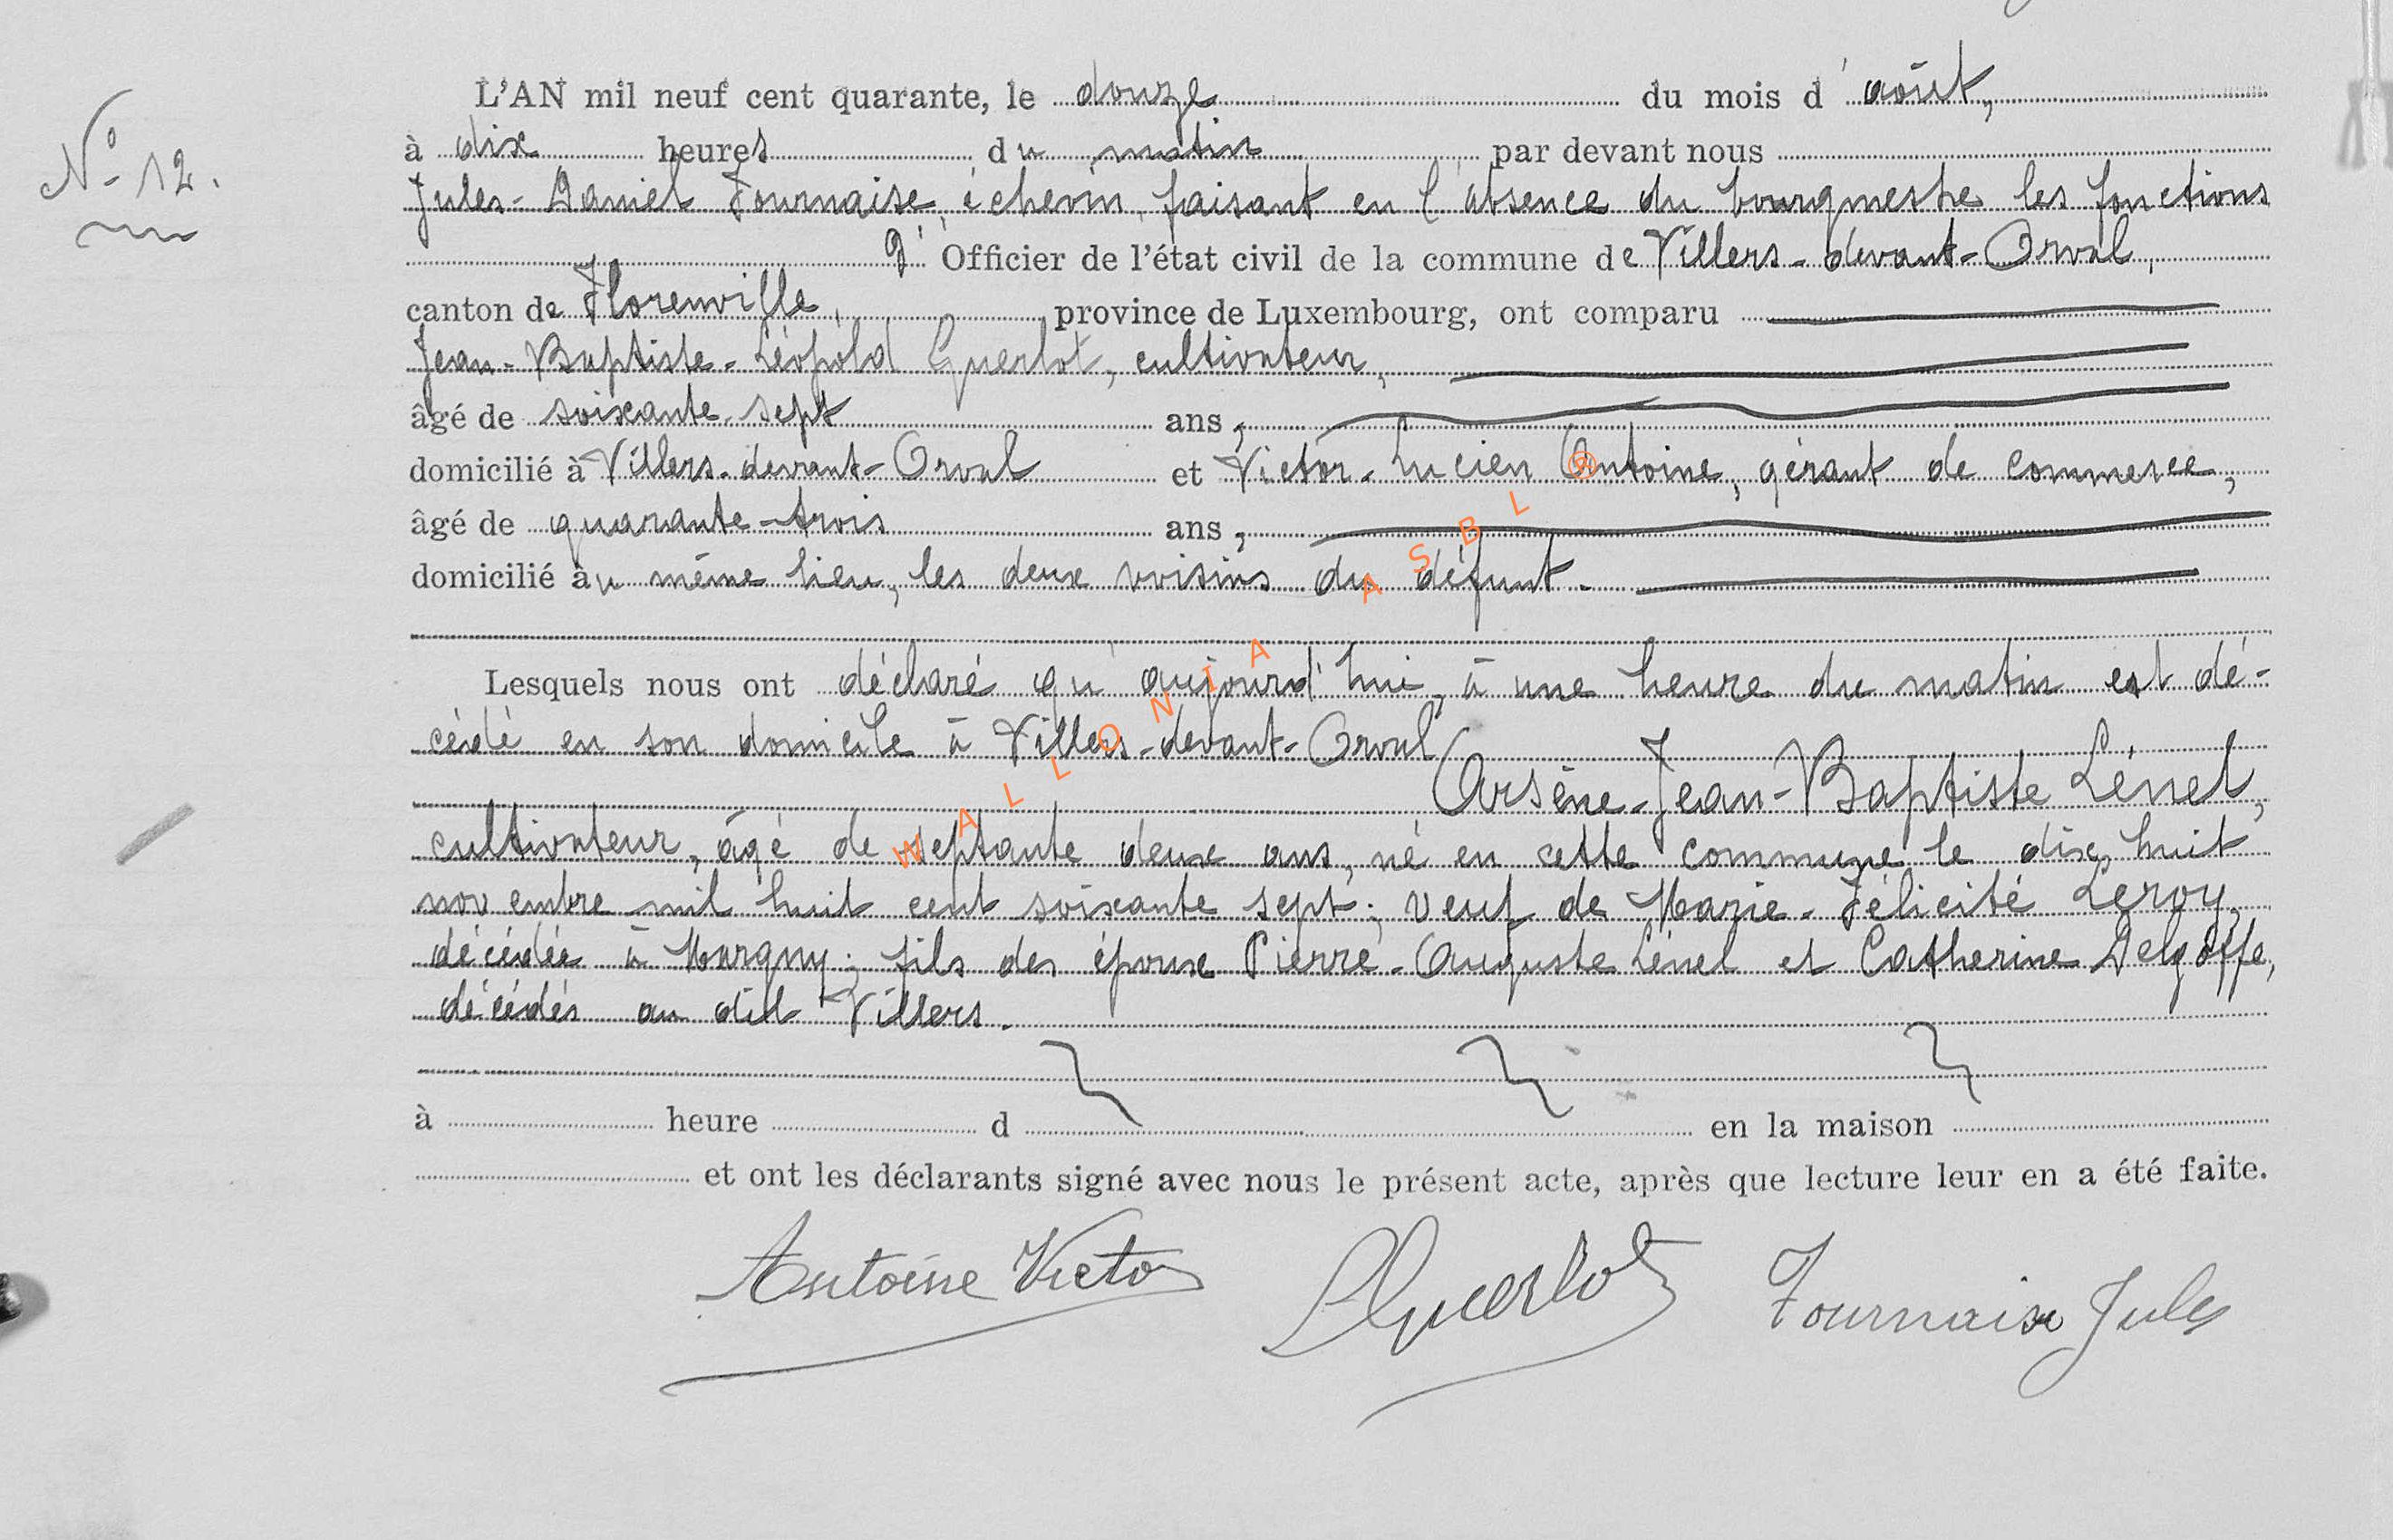 L'AN mil neuf cent quarante, le douze du mois d'août,
N° 12.
à dix heures du matin par devant nous
Jules-Daniel Fournaise, échevin, faisant en l'absence du bourgmestre les fonctions
d'Officier de l'état civil de la commune de Villers-devant-Orval,
canton de Florenville, province de Luxembourg, ont comparu
Jean-Baptiste-Léopold Guerlot, cultivateur,
âgé de soixante-sept ans,
domicilié à Villers-devant-Orval et Victor-Lucien Antoine, gérant de commerce,
âgé de quarante-trois ans,
domicilié au même lieu, les deux voisins du défunt.
Lesquels nous ont déclaré qu'aujourd'hui, à une heure du matin est dé-
cédé en son domicile à Villers-devant-Orval
Arsène-Jean-Baptiste Lénel,
cultivateur, âgé de septante deux ans, né en cette commune le dix huit
novembre mil huit cent soixante sept; veuf de Marie-Félicité Leroy,
décédée à Margny; fils des époux Pierre-Auguste Lénel et Catherine Delgoffe,
décédés au dit Villers.
à heure d en la maison
et ont les déclarants signé avec nous le présent acte, après que lecture leur en a été faite.
Antoine Victor LGuerlot Fournaise Jules
WALLONIA ASBL ®